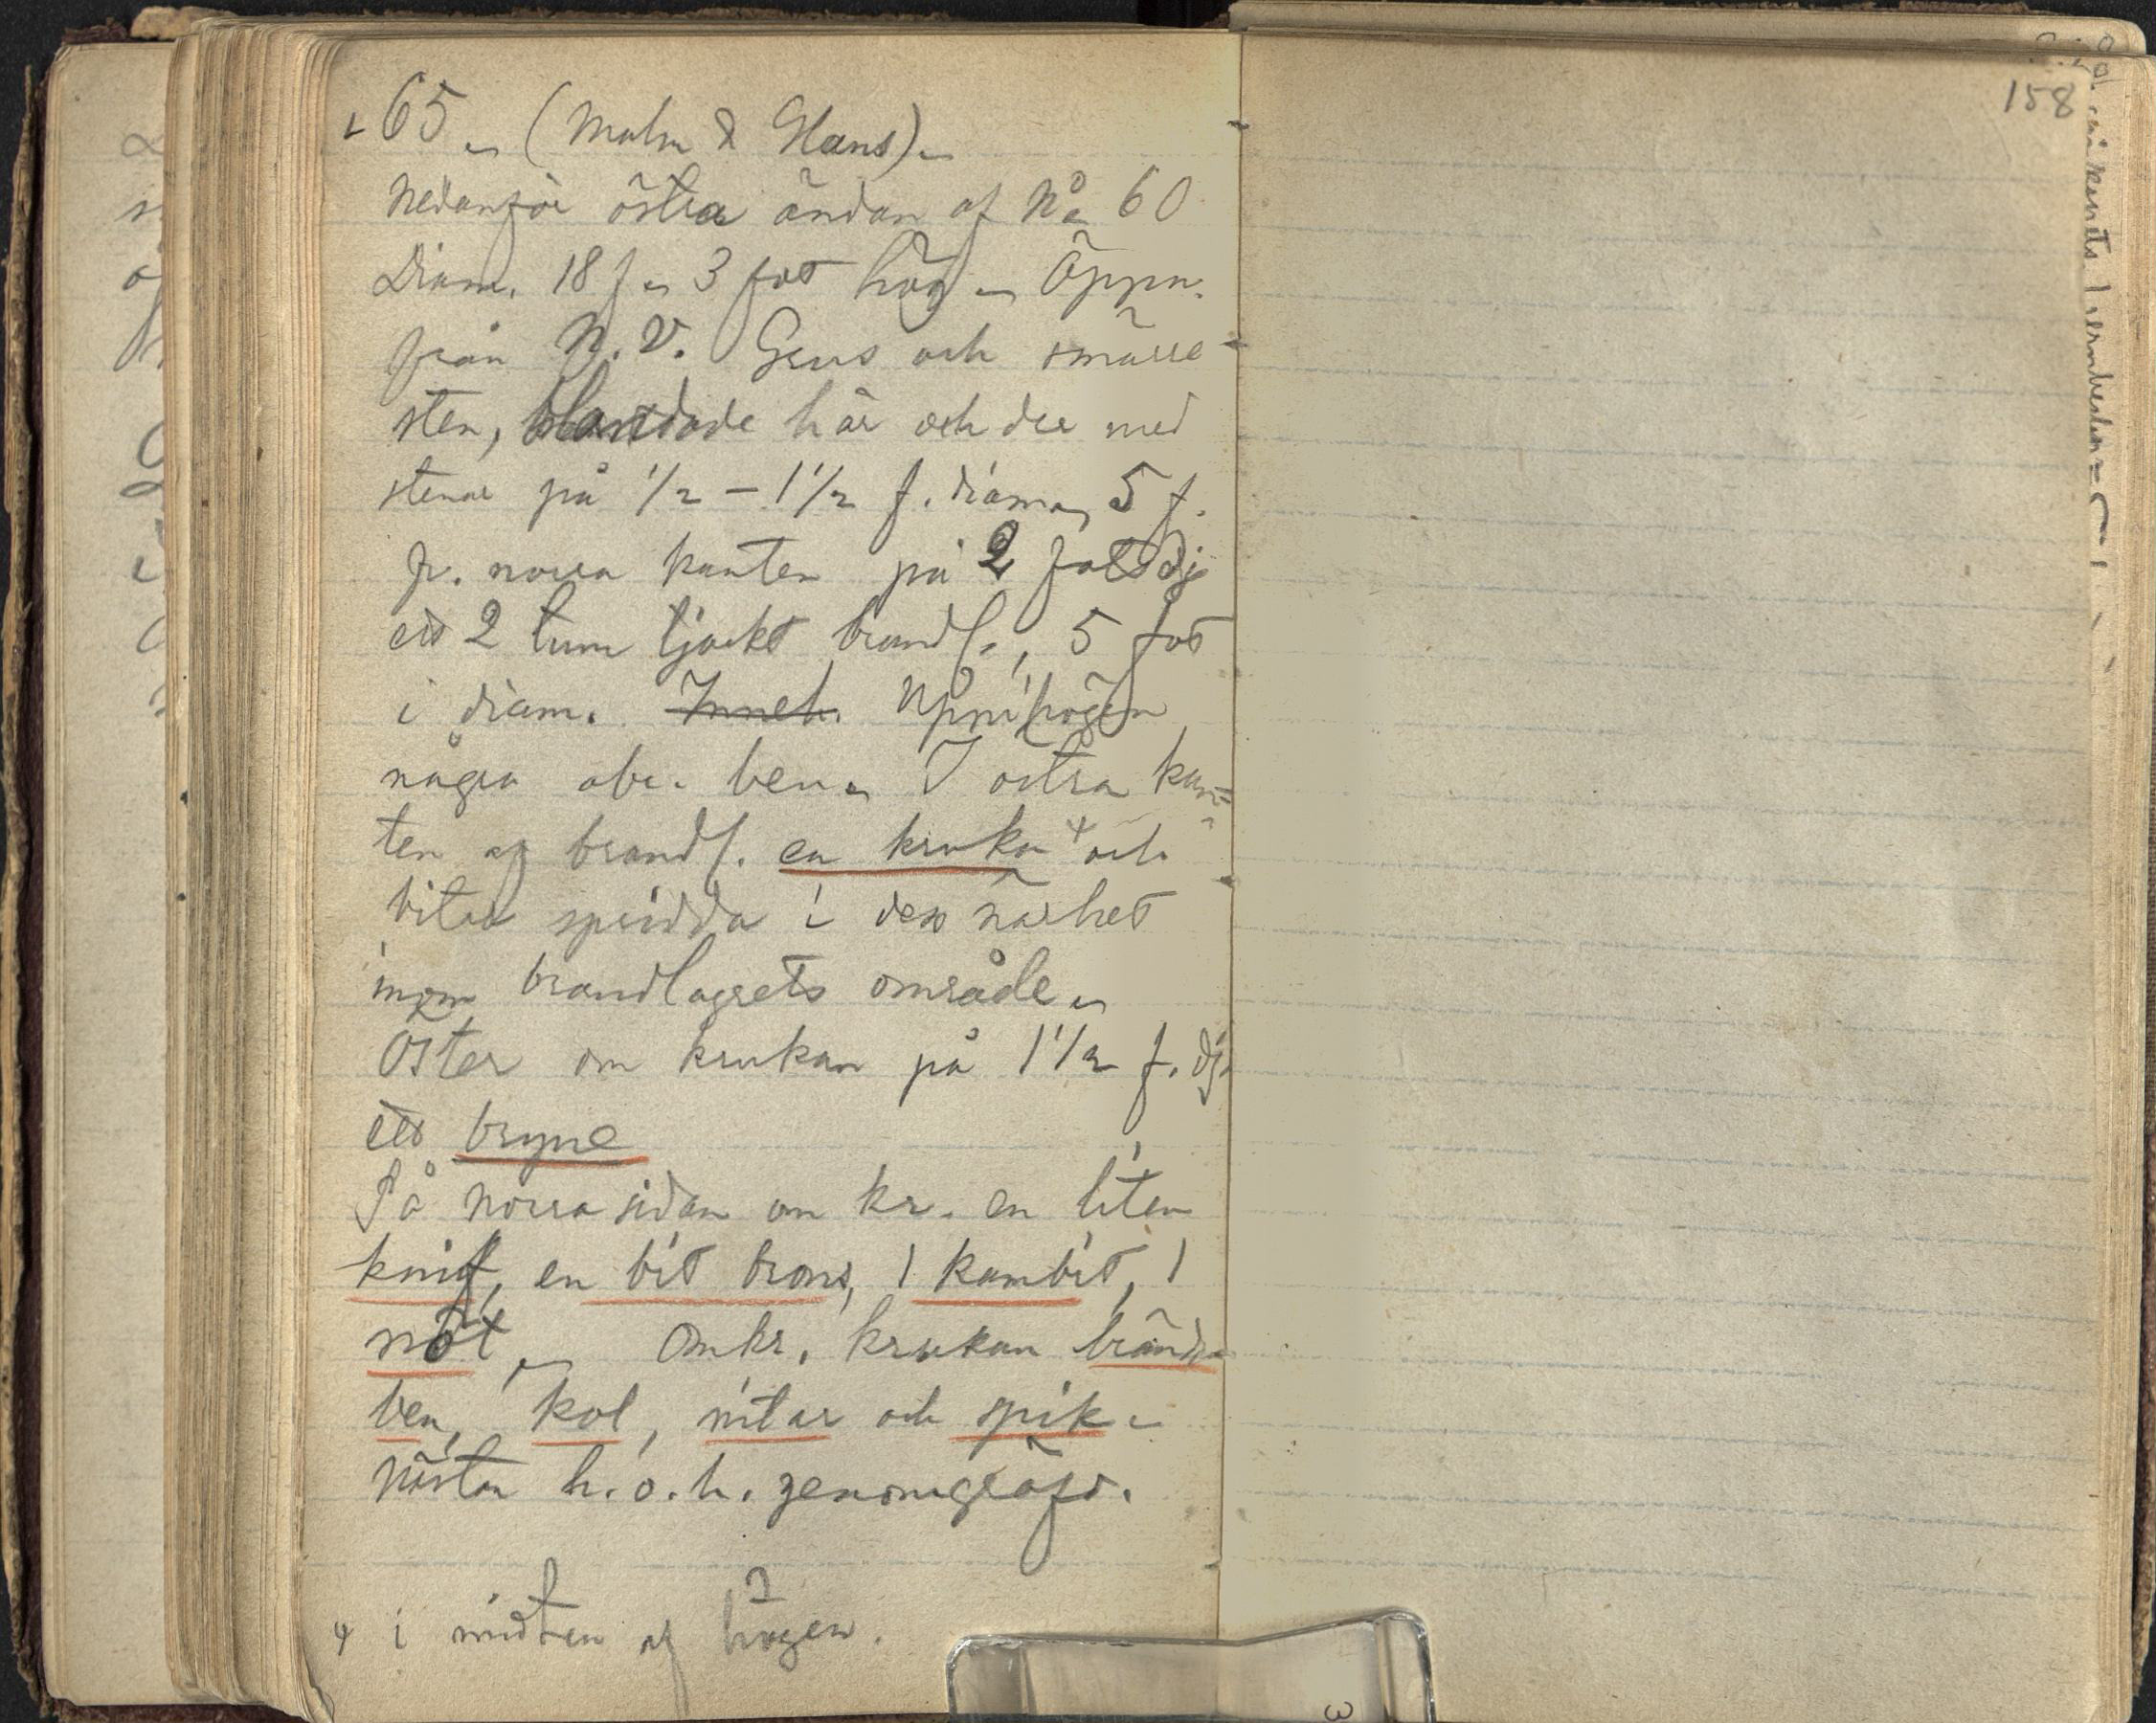 65. (Malm & Hans).
Nedanför östra ändan af No 60
Diam. 18 f. 3 fot hög. Öppn.
från N.V. Grus och smärre
sten, blandade här och der med
stenar på 1/2 – 1 1/2 f. diam. 5 f.
fr. norra kanten på 2 fots dj.
ett 2 tum tjockt brandl., 5 fot
i diam. Inneh. Uppe i högen
några obr. ben. I östra kan=
ten af brandl. en kruka + och
bitar spridda i dess närhet
inom brandlagrets område.
Öster om krukan på 1 1/2 f. dj.
ett bryne
På norra sidan om kr. en liten
knif, en bit brons, 1 kambit, 1
nöt. Omkr. krukan brända
ben, kol, nitar och spik.
Nästan h. o. h. genomgräfd.
+ i midten af högen.
158